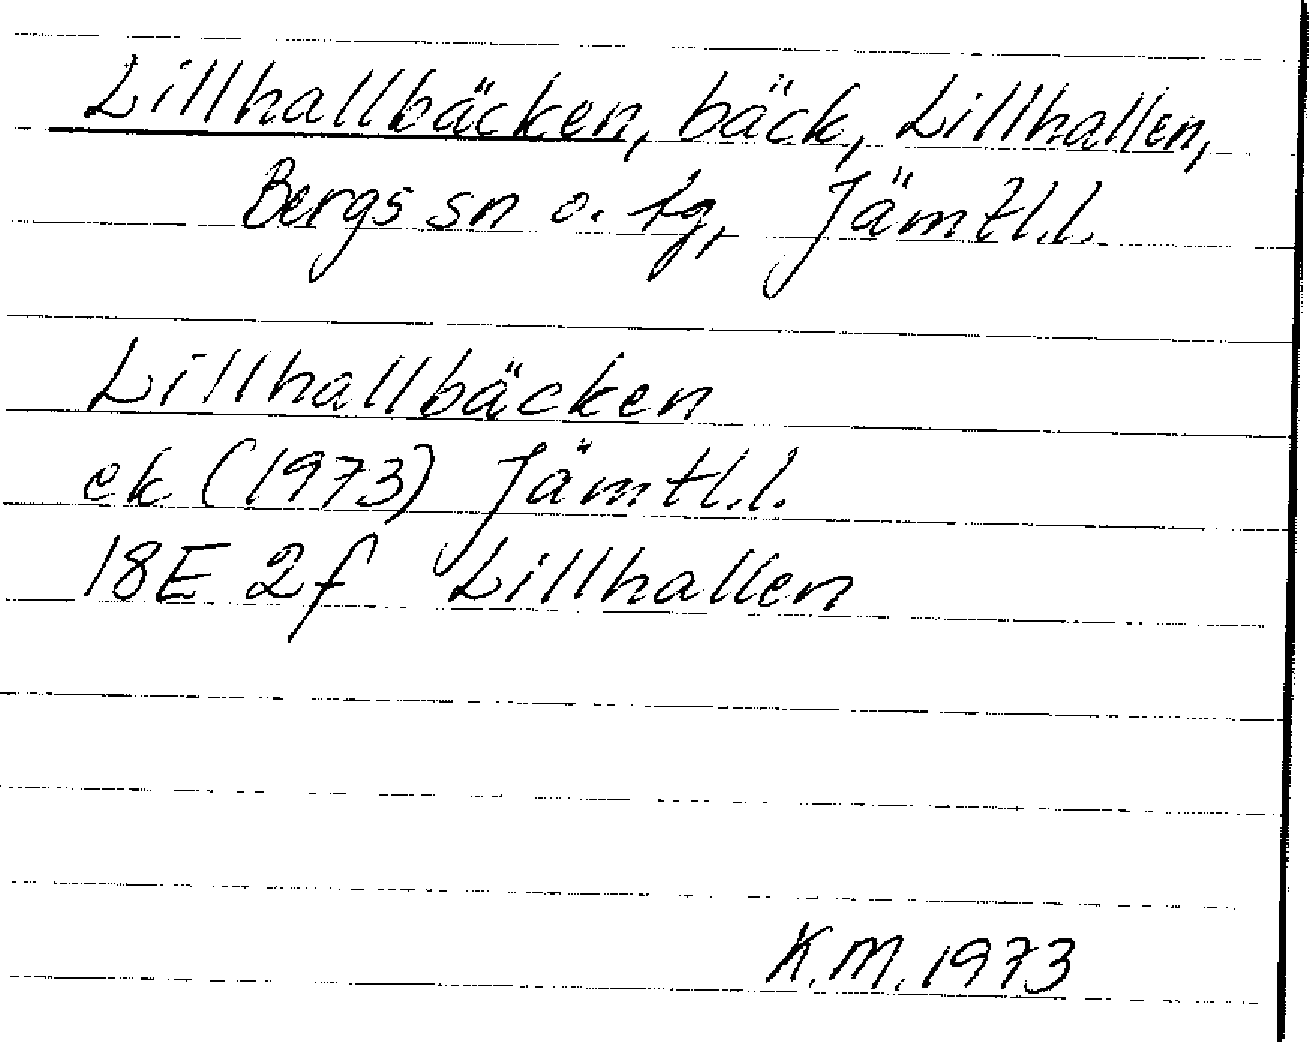 Lillhallbäcken, bäck, Lillhallen,
Bergs sn o. tg, Jämtl.l.
Lillhallbäcken
ek (1973) Jämtl.l.
18E 2f Lillhallen
K.M. 1973